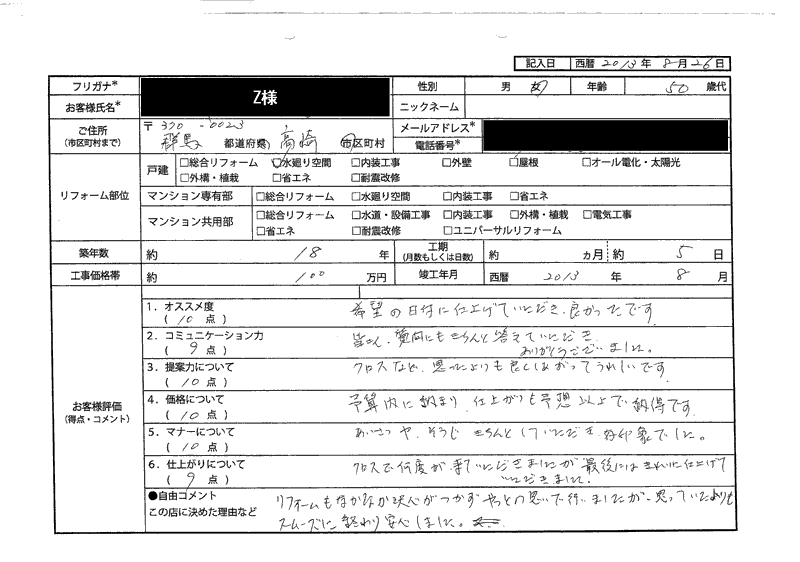 記入日 西暦 2013 年 8 月 26 日
フリガナ* Z様 性別 男 女 年齢 50 歳代
お客様氏名* ニックネーム
ご住所 (市区町村まで) 〒370-0023 群馬 都道府県) 高崎 市区町村 メールアドレス*
電話番号*
リフォーム部位
戸建 □総合リフォーム □水廻り空間 □内装工事 □外壁 □屋根 □オール電化・太陽光
□外構・植栽 □省エネ □耐震改修
マンション専有部 □総合リフォーム □水廻り空間 □内装工事 □省エネ
マンション共用部 □総合リフォーム □水道・設備工事 □内装工事 □外構・植栽 □電気工事
□省エネ □耐震改修 □ユニバーサルリフォーム
築年数 約 18 年 工期 (月数もしくは日数) 約 ヵ月 約 5 日
工事価格帯 約 100 万円 竣工年月 西暦 2013 年 8 月
お客様評価 (得点・コメント)
1.オススメ度 (10 点) 希望の日付に仕上げていただき、良かったです
2.コミュニケーション力 (9 点) 皆さん、質問にもきちんと答えていただき
ありがとうございました。
3.提案力について (10 点) クロスなど、思ったよりも良くしあがってうれしいです
4.価格について (10 点) 予算内に納まり、仕上がりも予想以上で、納得です
5.マナーについて (10 点) あいさつや、そうじきちんとしていただき、好印象でした。
6.仕上がりについて (9 点) クロスで何度が来ていただきましたが最後にはきれいに仕上げて
いただきました。
●自由コメント この店に決めた理由など リフォームもなかなか決心がつかずやっとの思いで行いましたが、思っていたよりも
スムーズに終わり安心しました。